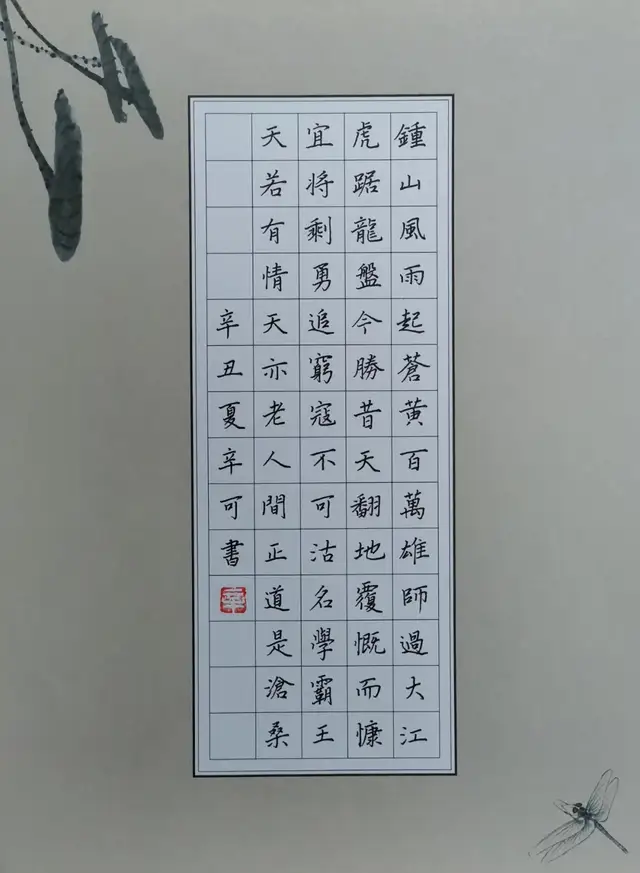 鍾山風雨起蒼黃百萬雄師過大江
虎踞龍盤今勝昔天翻地覆慨而慷
宜將剩勇追窮寇不可沽名學霸王
天若有情天亦老人間正道是滄桑
辛丑夏辛可書